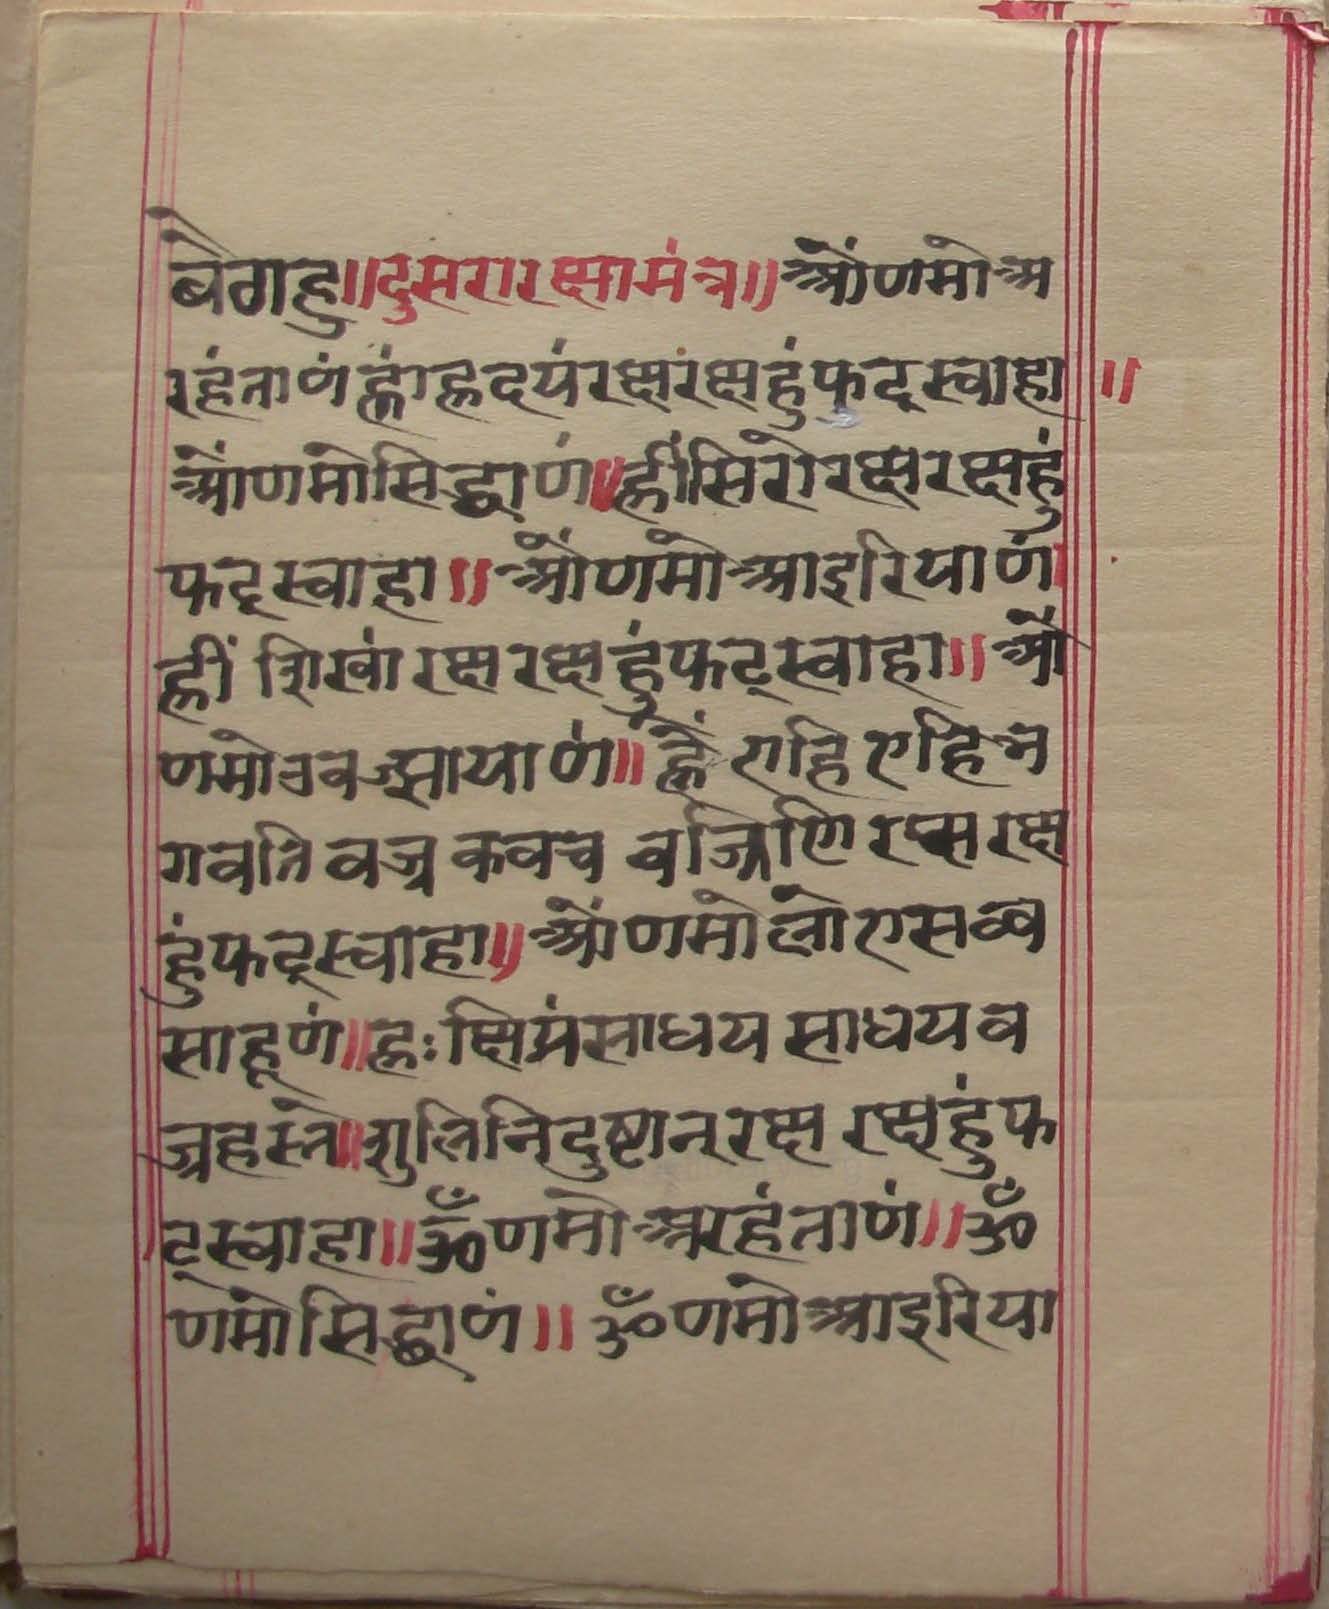 बैगहु॥दुसरारक्षामंत्र॥ओंणमोअ
रहंताणंह्रांह्रदयंरक्षरंक्षहुंफुट्स्वाहा॥
ओंणमोसिद्धाणं॥ह्रींसिरोरक्षरक्षहुं
फट्स्वाहा॥ओंणमोआइरियाणं
ह्रीं शिखां रक्षरक्षहुंफट्स्वाहा॥ओं
णमोउवज्झायाणं॥ह्रें एहि एहि भ
गवति वज्र कवच वज्रिणि रक्ष रक्ष
हुंफट्स्वाहा॥ओंणमोलोएसव्व
साहूणं॥ह्रः क्षिप्रंसाधय साधय व
ज्रहस्ते॥शुलिनिदुष्टान्रक्ष रक्षहुंफ
ट्स्वाहा॥ॐणमोअरहंताणं॥ॐ
णमोसिद्धाणं॥ ॐणमोआइरिया